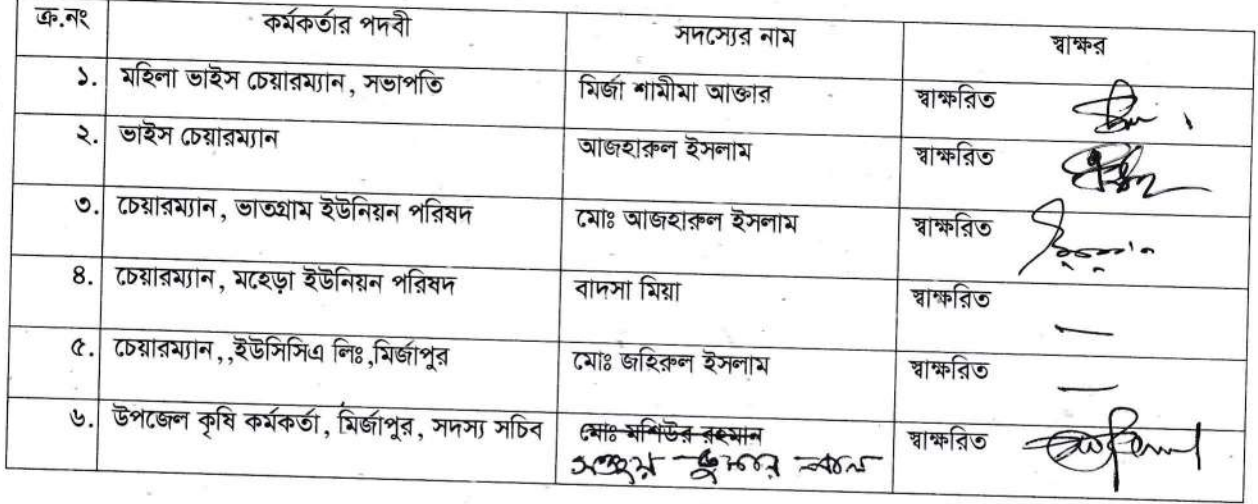 ক্র.নং কর্মকর্তার পদবী সদস্যের নাম স্বাক্ষর
১. মহিলা ভাইস চেয়ারম্যান, সভাপতি মির্জা শামীমা আক্তার স্বাক্ষরিত
২. ভাইস চেয়ারম্যান আজহারুল ইসলাম স্বাক্ষরিত
৩. চেয়ারম্যান, ভাতগ্রাম ইউনিয়ন পরিষদ মোঃ আজহারুল ইসলাম স্বাক্ষরিত
৪. চেয়ারম্যান, মহেড়া ইউনিয়ন পরিষদ বাদসা মিয়া স্বাক্ষরিত
৫. চেয়ারম্যান,,ইউসিসিএ লিঃ,মির্জাপুর মোঃ জহিরুল ইসলাম স্বাক্ষরিত
৬. উপজেল কৃষি কর্মকর্তা, মির্জাপুর, সদস্য সচিব মোঃ মশিউর রহমান স্বাক্ষরিত
কুমার পাল